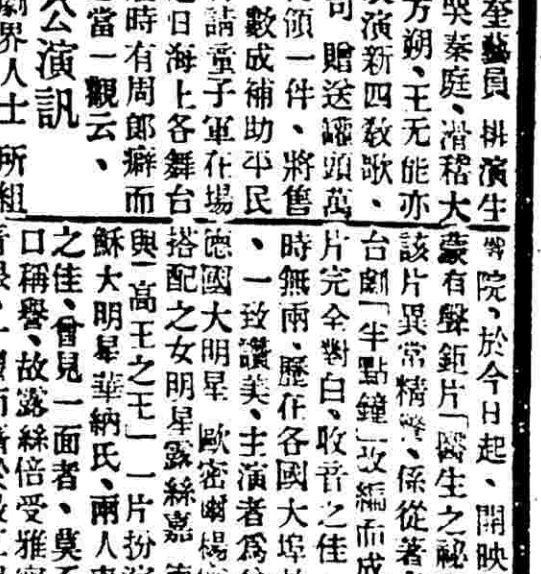 奎藝員 耕演生
哭秦庭、滑稽大
方朔、王无能亦
演新四教歌、
可 贈送罐頭萬
領一件、將售
數成補助平民
請童子軍在場
日海上各舞台
時有周郎癖而
當一觀云、
公演訊
劇界人士 所組
院、於今日起、開映
蒙有聲鉅片「醫生之祕
該片異常精警、係從著
台劇「半點鐘」改編而成
片完全對白、收音之佳
時無兩、歷在各國大埠
、一致讚美、主演者爲
德國大明星 歐密喇楊
搭配之女明星露絲嘉
與「高王之王」一片扮演
穌大明星華納氏、兩人
之佳、曾見一面者、莫不
口稱譽、故露絲倍受雅